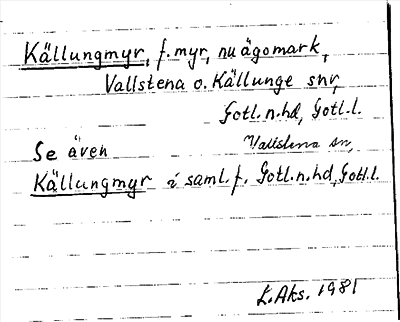 Källungmyr, f. myr, nu ägomark,
Vallstena o. Källunge snr,
Gotl. n. hd, Gotl. l.
Se även Vallstena sn,
Källungmyr i saml. f. Gotl. n. hd, Gotl. l.
L. Aks. 1981